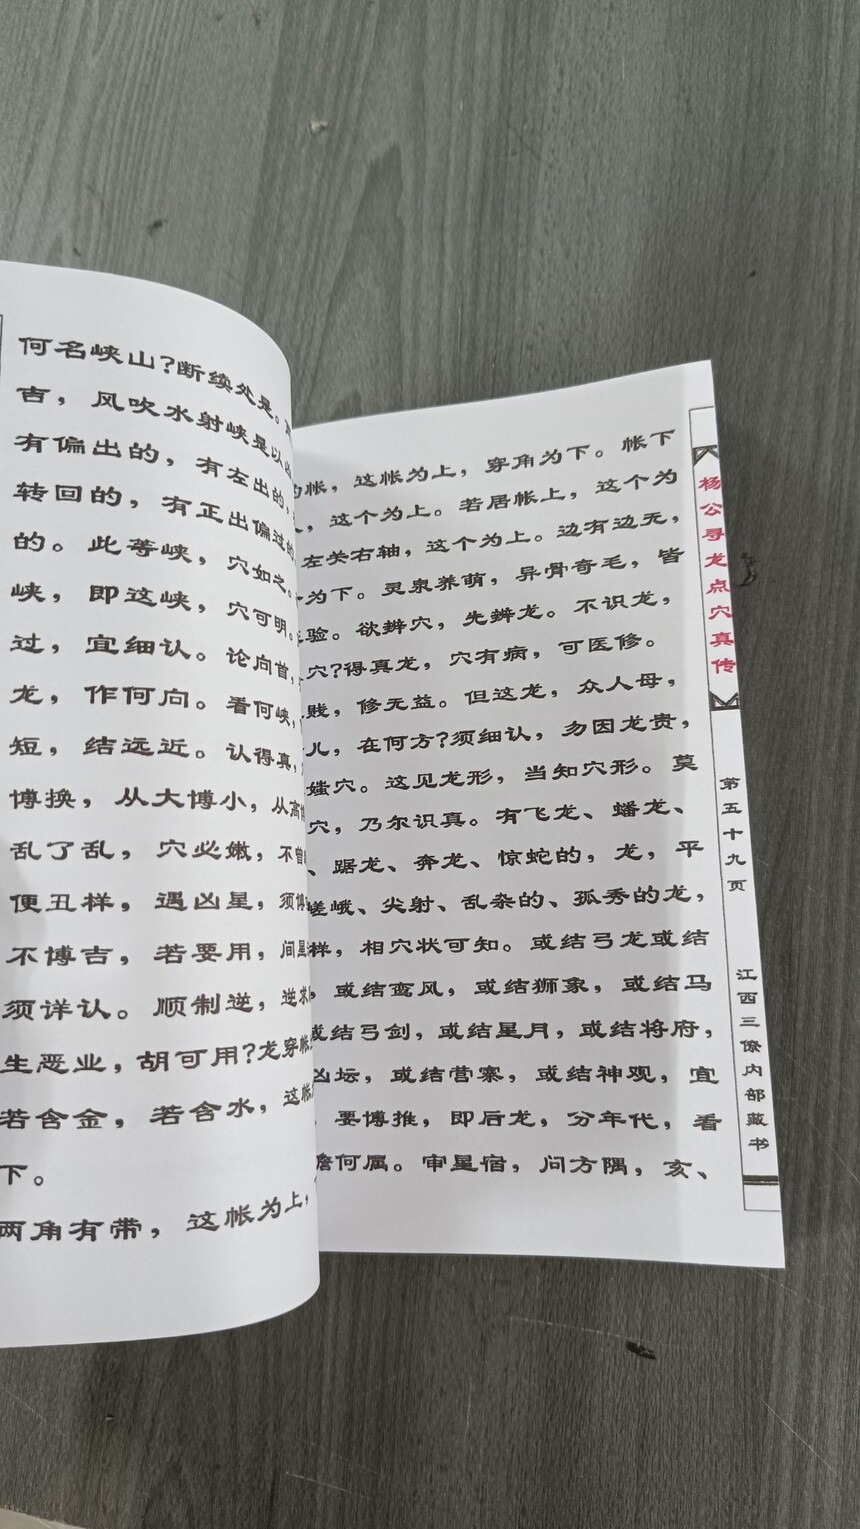 何名峡山?断续处是。
吉，风吹水射峡是以凶
有偏出的，有左出的，
转回的，有正出偏过的
的。此等峡，穴如之。
峡，即这峡，穴可明。
过，宜细认。论向首，
龙，作何向。看何峡，
短，结远近。认得真，
博换，从大博小，从高博
乱了乱，穴必嫩，不曾
便丑样，遇凶星，须博
不博吉，若要用，间星
须详认。顺制逆，逆求
生恶业，胡可用?龙穿帐
若含金，若含水，这帐
下。
两角有带，这帐为上，
帐，这帐为上，穿角为下。帐下
，这个为上。若居帐上，这个为
左关右轴，这个为上。边有边无，
为下。灵泉养萌，异骨奇毛，皆
验。欲辨穴，先辨龙。不识龙，
穴?得真龙，穴有病，可医修。
贱，修无益。但这龙，众人母，
儿，在何方?须细认，勿因龙贵，
穴。这见龙形，当知穴形。莫
穴，乃尔识真。有飞龙、蟠龙、
、踞龙、奔龙、惊蛇的，龙，平
嵯峨、尖射、乱杂的、孤秀的龙，
样，相穴状可知。或结弓龙或结
，或结鸾风，或结狮象，或结马
或结弓剑，或结星月，或结将府，
坛，或结营寨，或结神观，宜
要博推，即后龙，分年代，看
何属。审星宿，问方隅，亥、
杨公寻龙点穴真传
第五十九页
江西三僚内部藏书